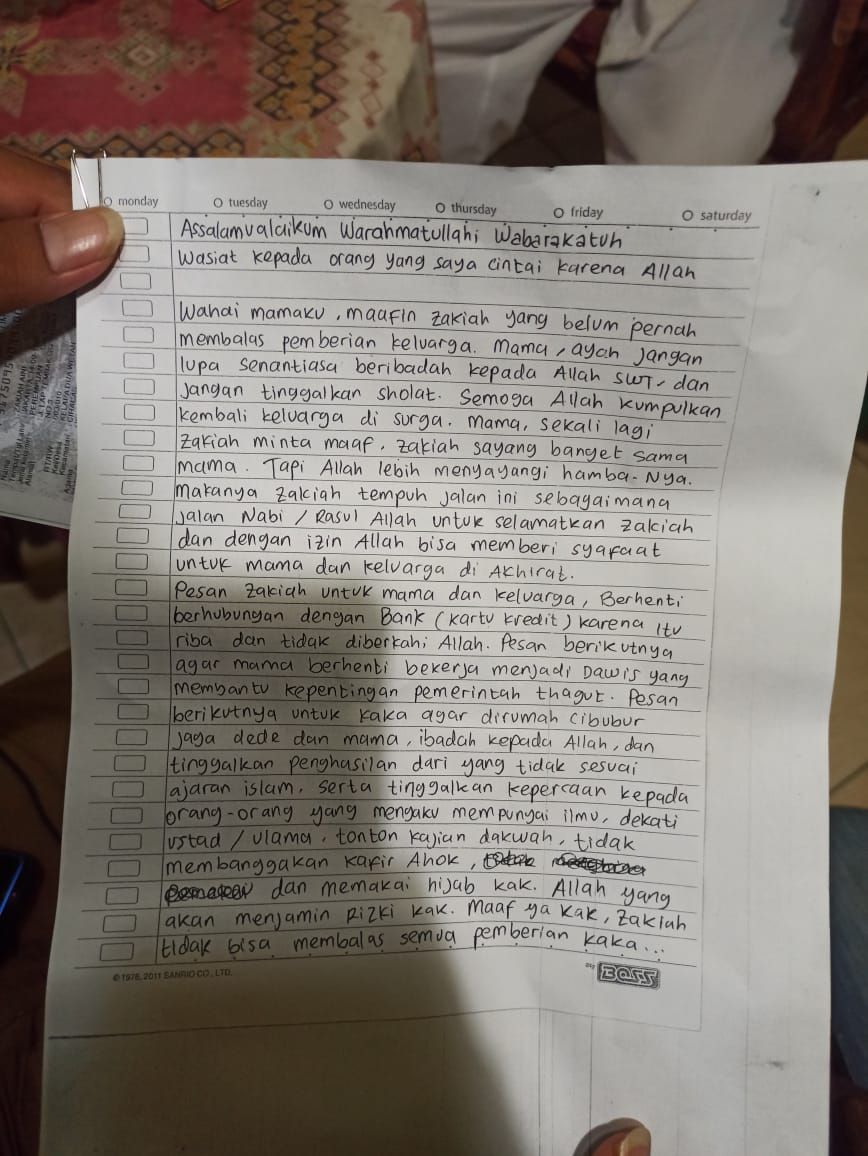 monday tuesday wednesday thursday friday saturday
Assalamualaikum Warahmatullahi Wabarakatuh
Wasiat kepada orang yang saya cintai karena Allah
Wahai mamaku, maafin zakiah yang belum pernah
membalas pemberian keluarga. Mama, ayah jangan
lupa senantiasa beribadah kepada Allah SWT, dan
Jangan tinggalkan sholat. Semoga Allah kumpulkan
kembali keluarga di surga. Mama, sekali lagi
zakiah minta maaf, zakiah sayang banget sama
mama. Tapi Allah lebih menyayangi hamba-Nya.
Makanya zakiah tempuh jalan ini sebagaimana
jalan Nabi / Rasul Allah untuk selamatkan zakiah
dan dengan izin Allah bisa memberi syafaat
untuk mama dan keluarga di Akhirat.
Pesan zakiah untuk mama dan keluarga, Berhenti
berhubungan dengan Bank (kartu kredit) karena itu
riba dan tidak diberkahi Allah. Pesan berikutnya
agar mama berhenti bekerja menjadi Dawis yang
membantu kepentingan pemerintah thagut. Pesan
berikutnya untuk kaka agar dirumah Cibubur
jaga dede dan mama, ibadah kepada Allah, dan
tinggalkan penghasilan dari yang tidak sesuai
ajaran islam, serta tinggalkan kepercaan kepada
orang-orang yang mengaku mempunyai ilmu, dekati
ustad / ulama, tonton kajian dakwah, tidak
membanggakan kafir Ahok,
dan memakai hijab kak. Allah yang
akan menjamin rizki kak. Maaf ya kak, Zakiah
tidak bisa membalas semua pemberian kaka...
© 1976, 2011 SANRIO CO., LTD.